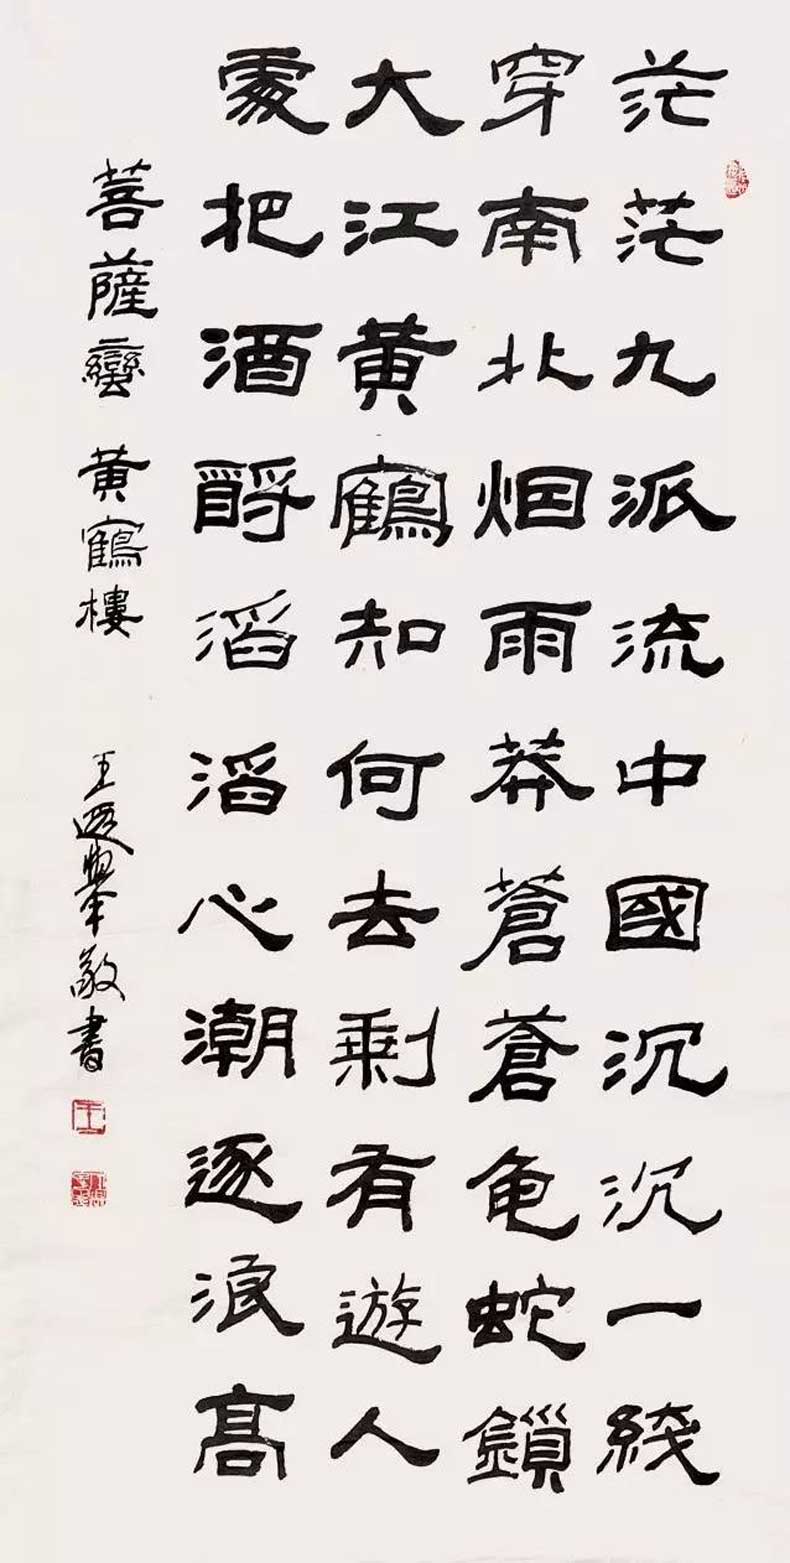 茫茫九派流中國沉沉一綫
穿南北烟雨莽蒼蒼龟蛇鎖
大江黄鶴知何去剩有遊人
處把酒酹滔滔心潮逐浪高
菩薩蠻 黄鶴樓 王遐舉敬書
王